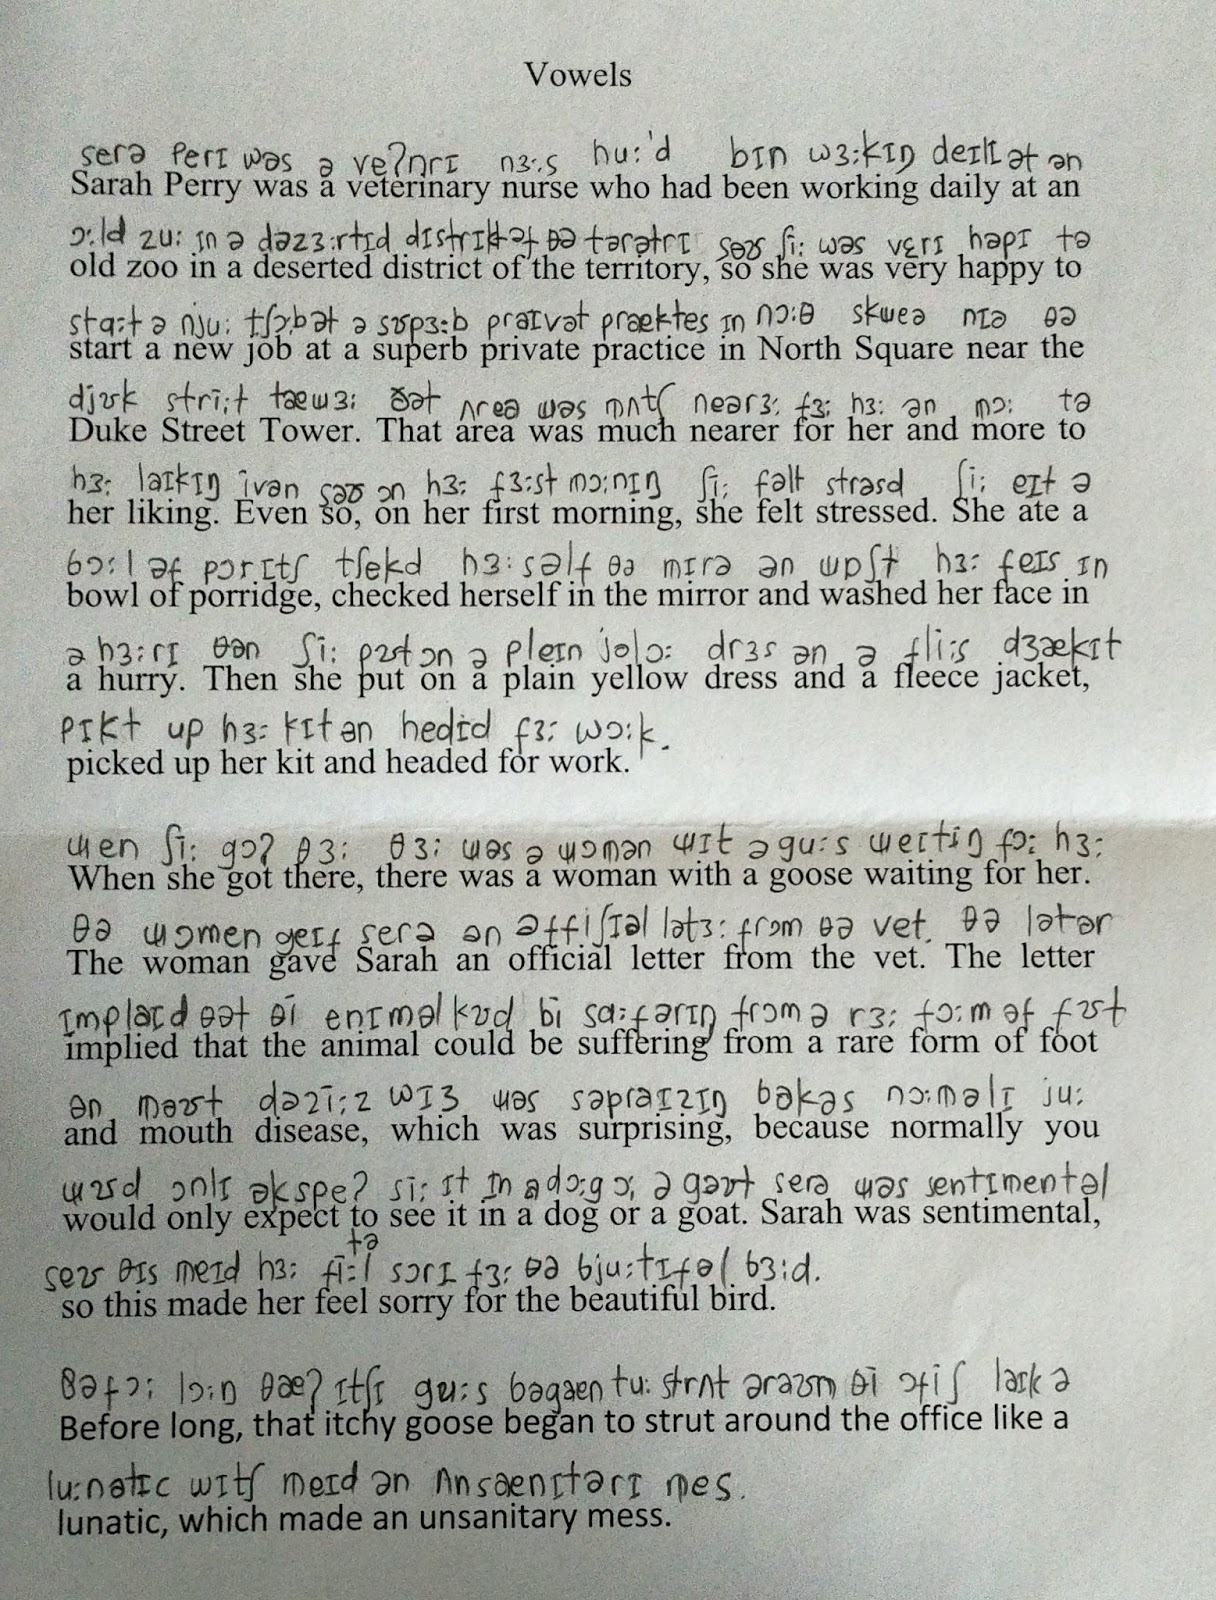 Vowels
serə Perɪ wəs ə veʔnrɪ nɜ:s hu:'d bɪn wɜ:kɪŋ deɪlɪ ət ən
Sarah Perry was a veterinary nurse who had been working daily at an
ɔ:ld zu: ɪn ə dəzɜ:rtɪd dɪstrɪkt əf θə tərətrɪ səʊ ʃi: wəs vɛrɪ həpɪ tə
old zoo in a deserted district of the territory, so she was very happy to
stɑ:t ə nju: tʃɔ:b ət ə sʊpɜ:b praɪvət præktes ɪn nɔ:θ skweə nɪə θə
start a new job at a superb private practice in North Square near the
djʊk stri:t tæwɜ: ðət ʌreə wəs mʌtʃ neərɜ: fɜ: hɜ: ən mɔ: tə
Duke Street Tower. That area was much nearer for her and more to
hɜ: laɪkɪŋ īvən səʊ ɔn hɜ: fɜ:st mɔ:nɪŋ ʃi: fəlt strəsd ʃi: eɪt ə
her liking. Even so, on her first morning, she felt stressed. She ate a
bɔ:l əf pɔrɪtʃ tʃekd hɜ:səlf θə mɪrə ən wɒʃt hɜ: feɪs ɪn
bowl of porridge, checked herself in the mirror and washed her face in
ə hɜ:rɪ θən ʃi: pʊt ɔn ə pleɪn jolɔ: drɜs ən ə fli:s dʒækɪt
a hurry. Then she put on a plain yellow dress and a fleece jacket,
pɪkt up hɜ: kɪt ən hedɪd fɜ: wɔ:k.
picked up her kit and headed for work.
wen ʃi: gɔʔ θɜ: θɜ: wəs ə wɔmən wɪt ə gu:s weɪtiŋ fɔ: hɜ:
When she got there, there was a woman with a goose waiting for her.
θə wɔmen geɪf serə ən əffiʃɪəl lətɜ: frɔm θə vet. θə lətər
The woman gave Sarah an official letter from the vet. The letter
ɪmplaɪd θət θī enɪməl kʊd bī sɑ:fərɪŋ frɔm ə rɜ: fɔ:m əf fʊt
implied that the animal could be suffering from a rare form of foot
ən məʊt dəzī:z wɪʒ wəs səpraɪzɪŋ bəkəs nɔ:məlɪ ju:
and mouth disease, which was surprising, because normally you
wʊd ɔnlɪ əkspeʔ tə si: ɪt ɪn ə dɔ:g ɔ: ə gəʊt serə wəs sentɪmentəl
would only expect to see it in a dog or a goat. Sarah was sentimental,
seʊ θɪs meɪd hɜ: fī:l sɔrɪ fɜ: θə bju:tɪfəl bɜ:d.
so this made her feel sorry for the beautiful bird.
Bəfɔ: lɔ:ŋ θæʔ ɪtʃɪ gu:s bəgæn tu: strʌt əraʊm θī ɔfiʃ laɪk ə
Before long, that itchy goose began to strut around the office like a
lu:nətɪc wɪtʃ meɪd ən ʌnsænɪtərɪ mes.
lunatic, which made an unsanitary mess.